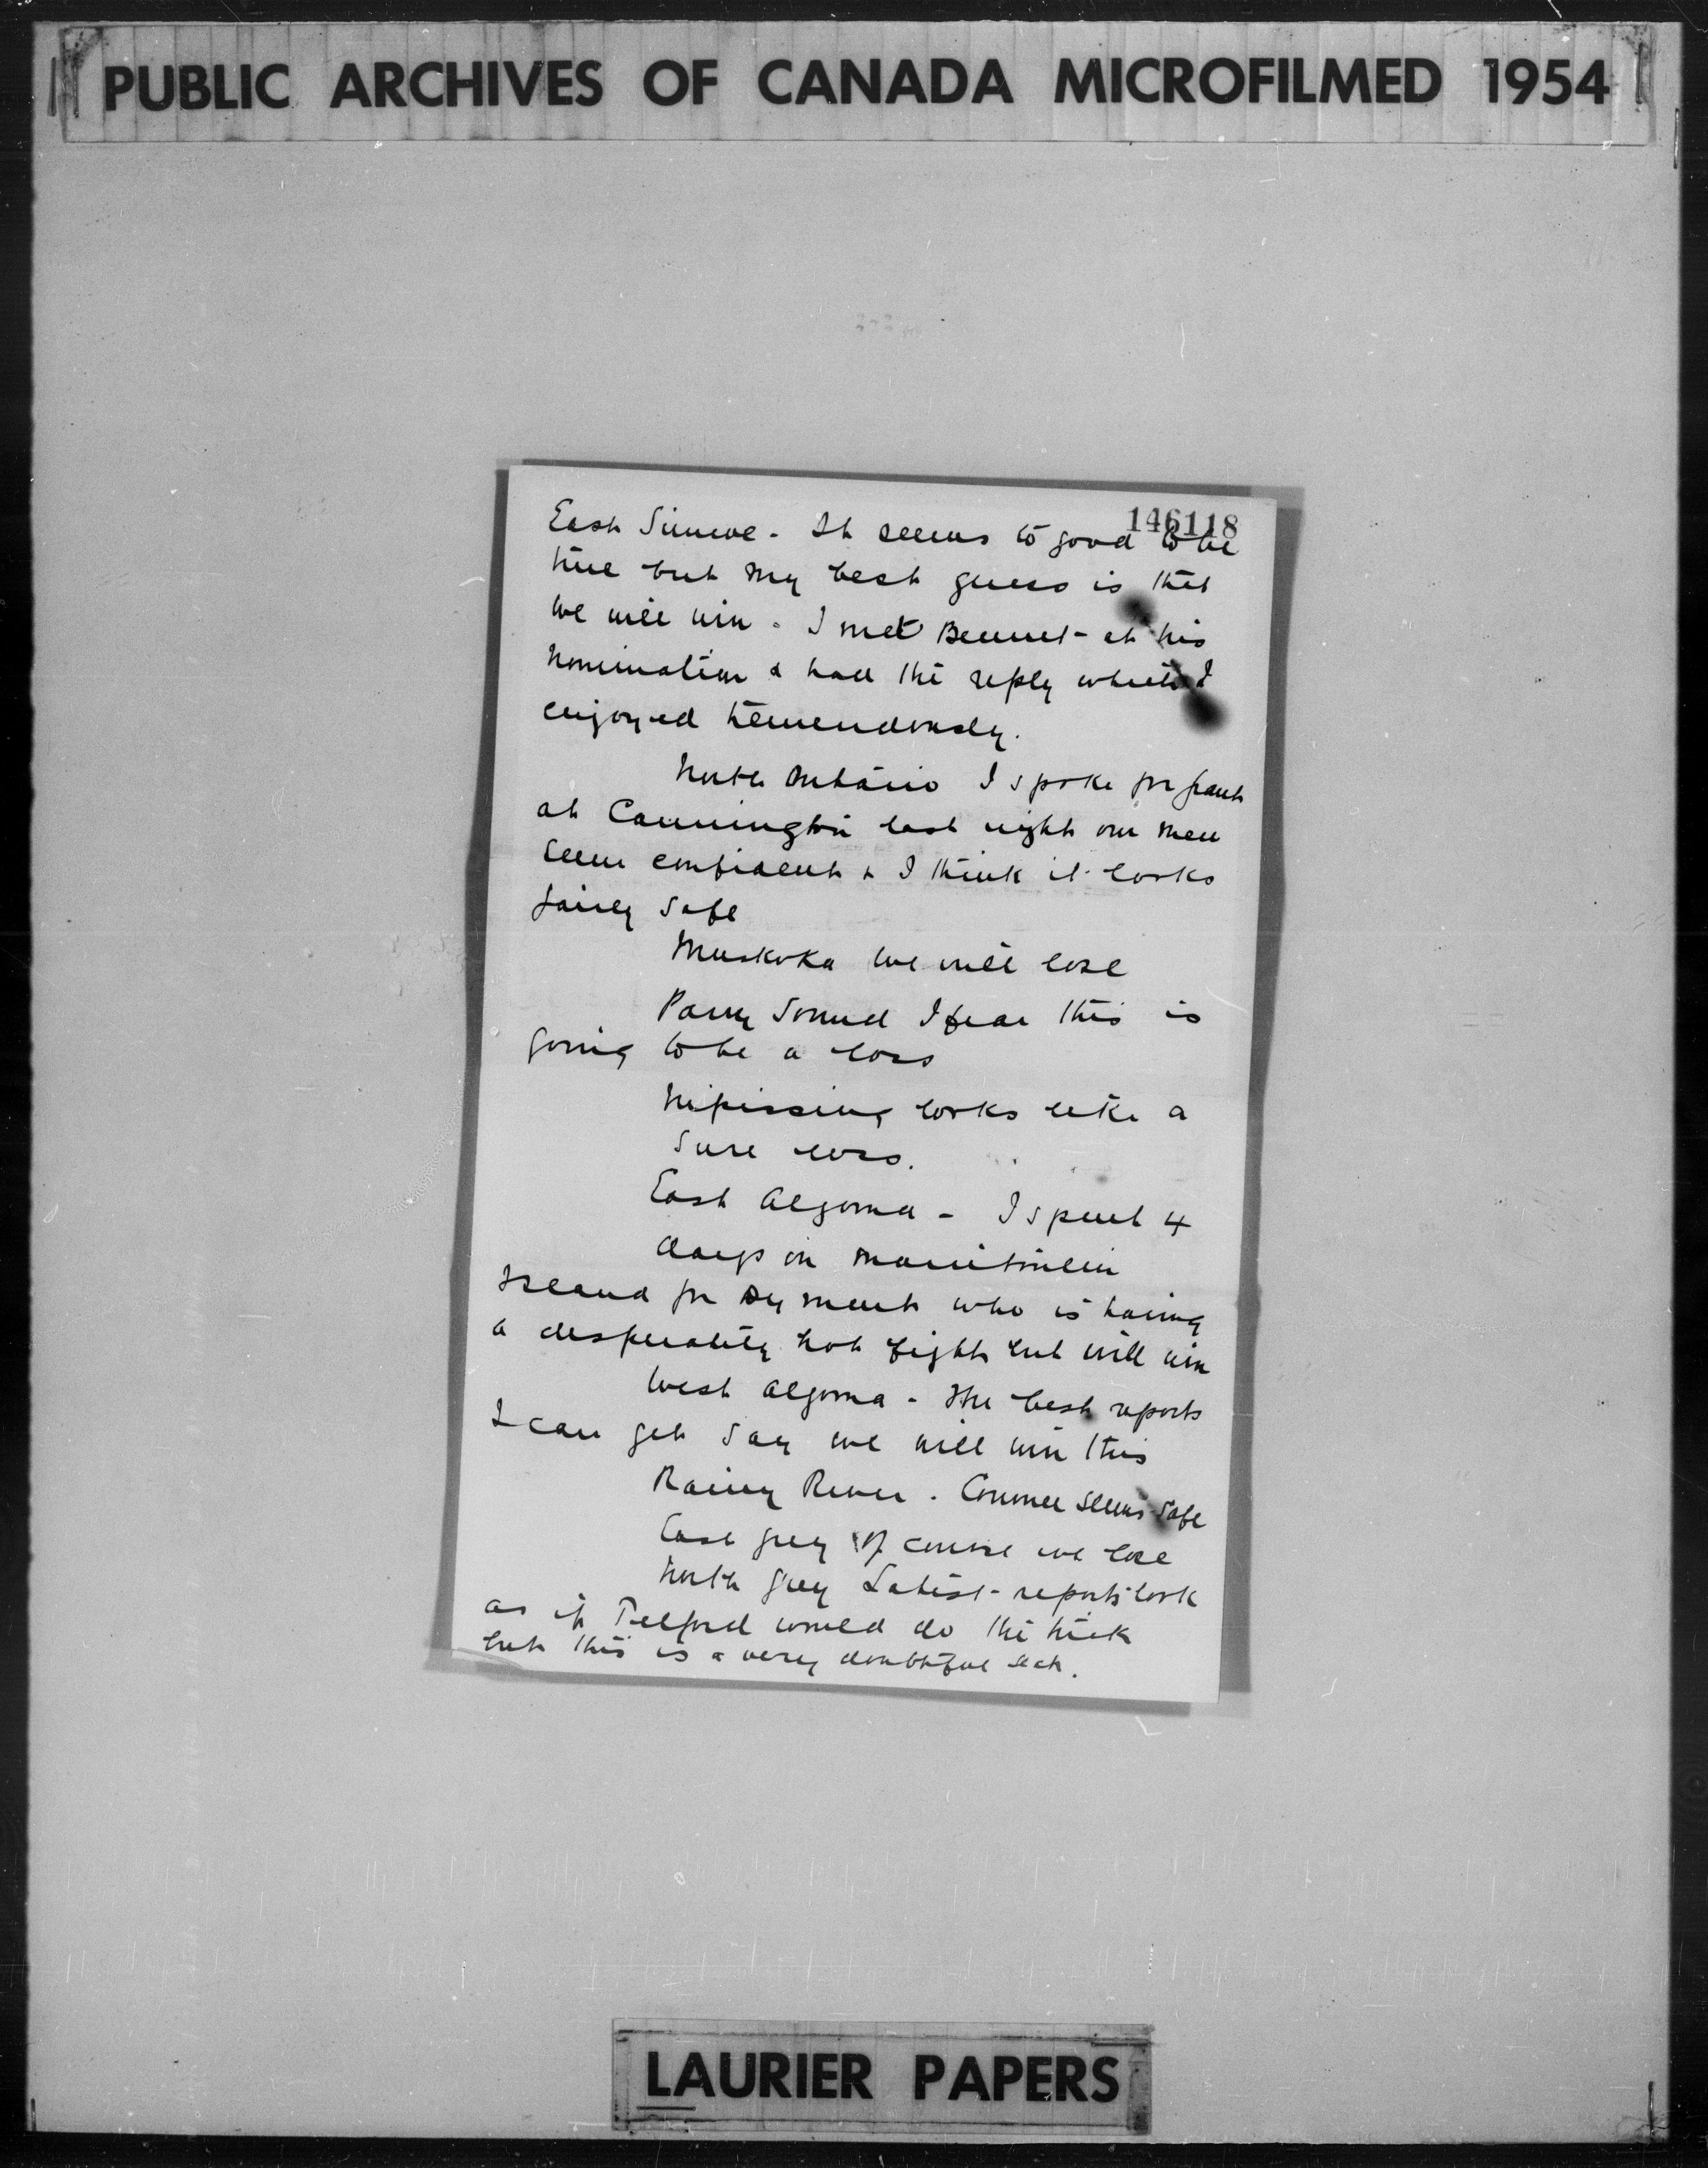 PUBLIC ARCHIVES OF CANADA MICROFILMED 1954
146118
East Simcoe - It seems to good to be
true but my best guess is that
we will win. I met Bennet at his
nomination & had the reply which I
enjoyed tremendously.
North Ontario I spoke for Grant
at Cannington last night our men
seem confident & I think it looks
fairly safe
Muskoka we will lose
Parry Sound I fear this is
going to be a loss
Nipissing looks like a
sure loss.
East Algoma - I spent 4
days in Manitoulin
Island for Dyment who is having
a desperately hot fight but will win
West Algoma - The best reports
I can get say we will win this
Rainy River. Conmee seems safe
East Grey of course we lose
North Grey Latest reports look
as if Telford would do the trick
but this is a very doubtful seat.
LAURIER PAPERS